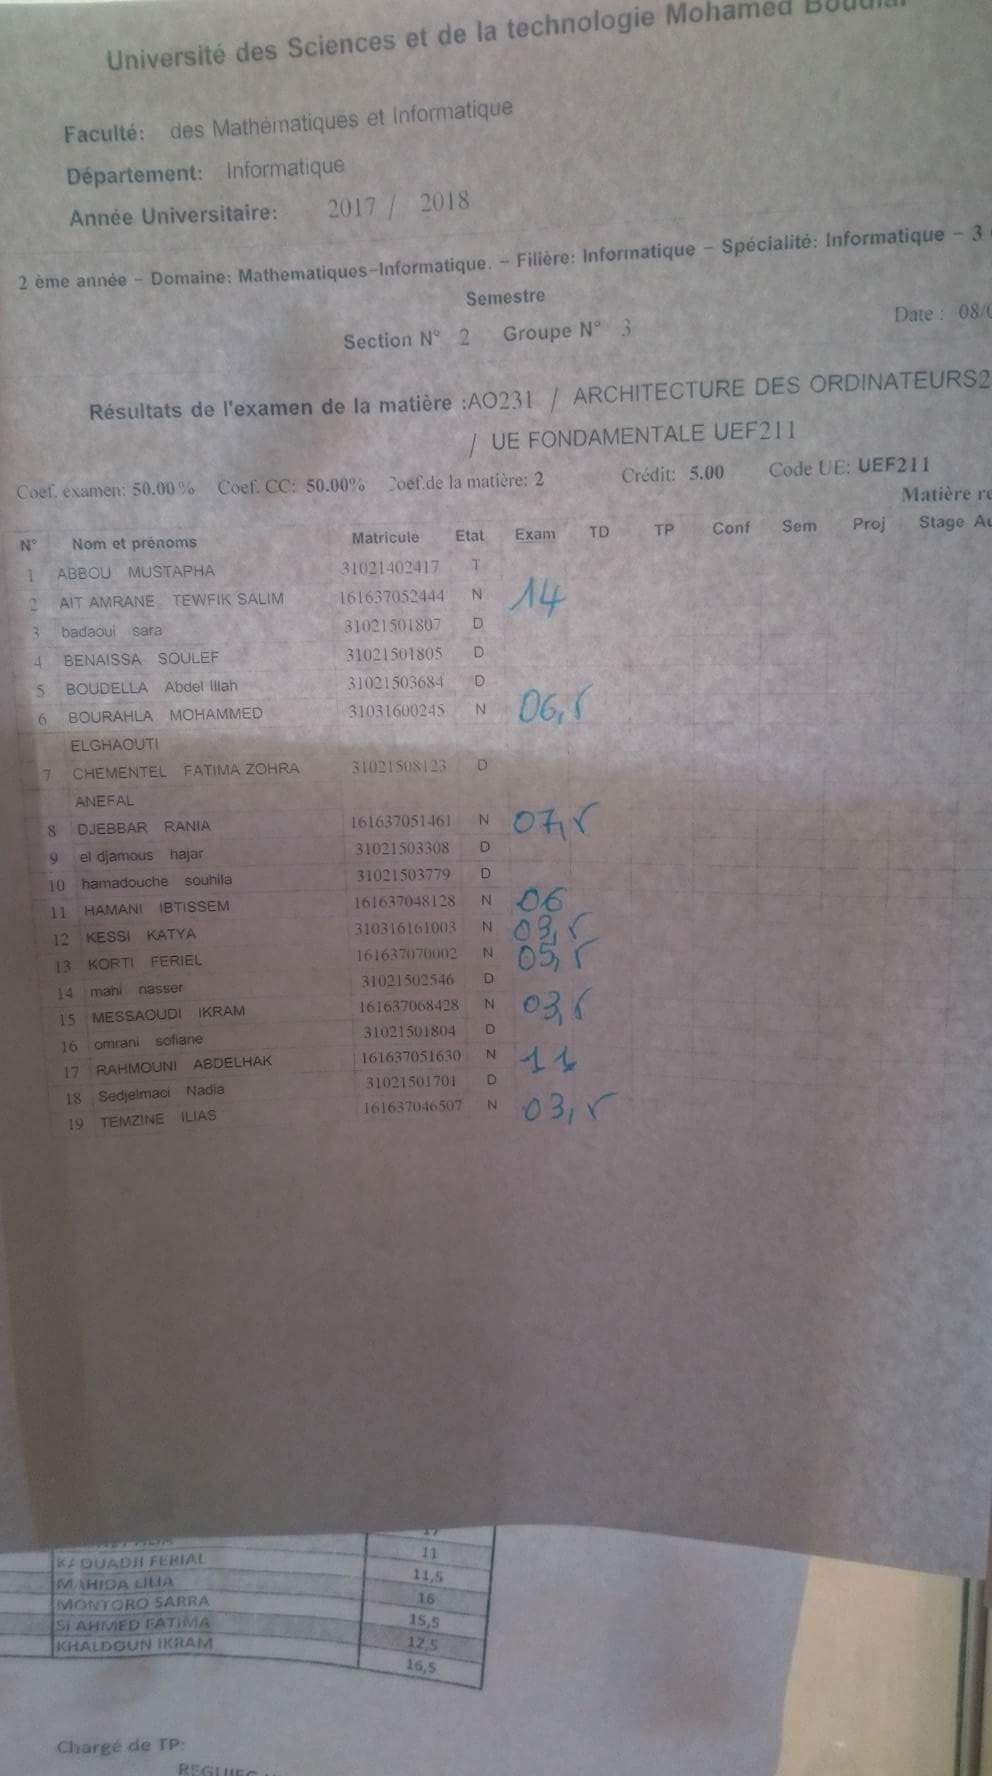 Université des Sciences et de la technologie Mohamed
Faculté: des Mathématiques et Informatique
Département: Informatique
Année Universitaire: 2017 / 2018
2 ème année - Domaine: Mathematiques-Informatique. - Filière: Informatique - Spécialité: Informatique - 3
Semestre
Section N° 2 Groupe N° 3
Date : 08/
Résultats de l'examen de la matière :AO231 / ARCHITECTURE DES ORDINATEURS2
/ UE FONDAMENTALE UEF211
Coef. examen: 50.00% Coef. CC: 50.00% Coef.de la matière: 2 Crédit: 5.00 Code UE: UEF211
Matière
N° Nom et prénoms Matricule Etat Exam TD TP Conf Sem Proj Stage
1 ABBOU MUSTAPHA 31021402417 T
2 AIT AMRANE TEWFIK SALIM 161637052444 N 14
3 badaoui sara 31021501807 D
4 BENAISSA SOULEF 31021501805 D
5 BOUDELLA Abdel Illah 31021503684 D
6 BOURAHLA MOHAMMED 31031600245 N 06,5
ELGHAOUTI
7 CHEMENTEL FATIMA ZOHRA 31021508123 D
ANEFAL
8 DJEBBAR RANIA 161637051461 N 07,5
9 el djamous hajar 31021503308 D
10 hamadouche souhila 31021503779 D
11 HAMANI IBTISSEM 161637048128 N 06
12 KESSI KATYA 310316161003 N 03,5
13 KORTI FERIEL 161637070002 N 05,5
14 mahi nasser 31021502546 D
15 MESSAOUDI IKRAM 161637068428 N 03,5
16 omrani sofiane 31021501804 D
17 RAHMOUNI ABDELHAK 161637051630 N 11
18 Sedjelmaci Nadia 31021501701 D
19 TEMZINE ILIAS 161637046507 N 03,5
17
KAOUADJI FERIAL 11
MAHIDA LILIA 11,5
MONTORO SARRA 16
SI AHMED FATIMA 15,5
KHALDOUN IKRAM 12,5
16,5
Chargé de TP: